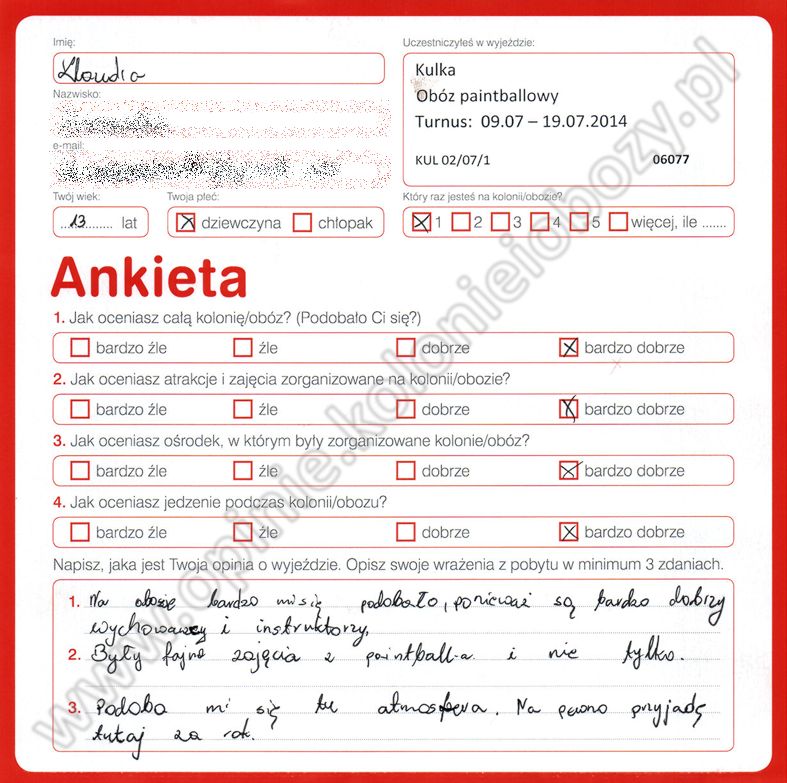 Imię:
Klaudia
Uczestniczyłeś w wyjeździe:
Kulka
Obóz paintballowy
Turnus: 09.07 – 19.07.2014
KUL 02/07/1 06077
Nazwisko:
e-mail:
Twój wiek:
13 lat
Twoja płeć:
dziewczyna chłopak
Który raz jesteś na kolonii/obozie?
1 2 3 4 5 więcej, ile .......
Ankieta
1. Jak oceniasz całą kolonię/obóz? (Podobało Ci się?)
bardzo źle źle dobrze bardzo dobrze
2. Jak oceniasz atrakcje i zajęcia zorganizowane na kolonii/obozie?
bardzo źle źle dobrze bardzo dobrze
3. Jak oceniasz ośrodek, w którym były zorganizowane kolonie/obóz?
bardzo źle źle dobrze bardzo dobrze
4. Jak oceniasz jedzenie podczas kolonii/obozu?
bardzo źle źle dobrze bardzo dobrze
Napisz, jaka jest Twoja opinia o wyjeździe. Opisz swoje wrażenia z pobytu w minimum 3 zdaniach.
1. Na obozie bardzo mi się podobało, ponieważ są bardzo dobrzy
wychowawcy i instruktorzy.
2. Były fajne zajęcia z paintball-a i nie tylko.
3. Podoba mi się tu atmosfera. Na pewno przyjadę
tutaj za rok.
www.opinie.kolonieiobozy.pl